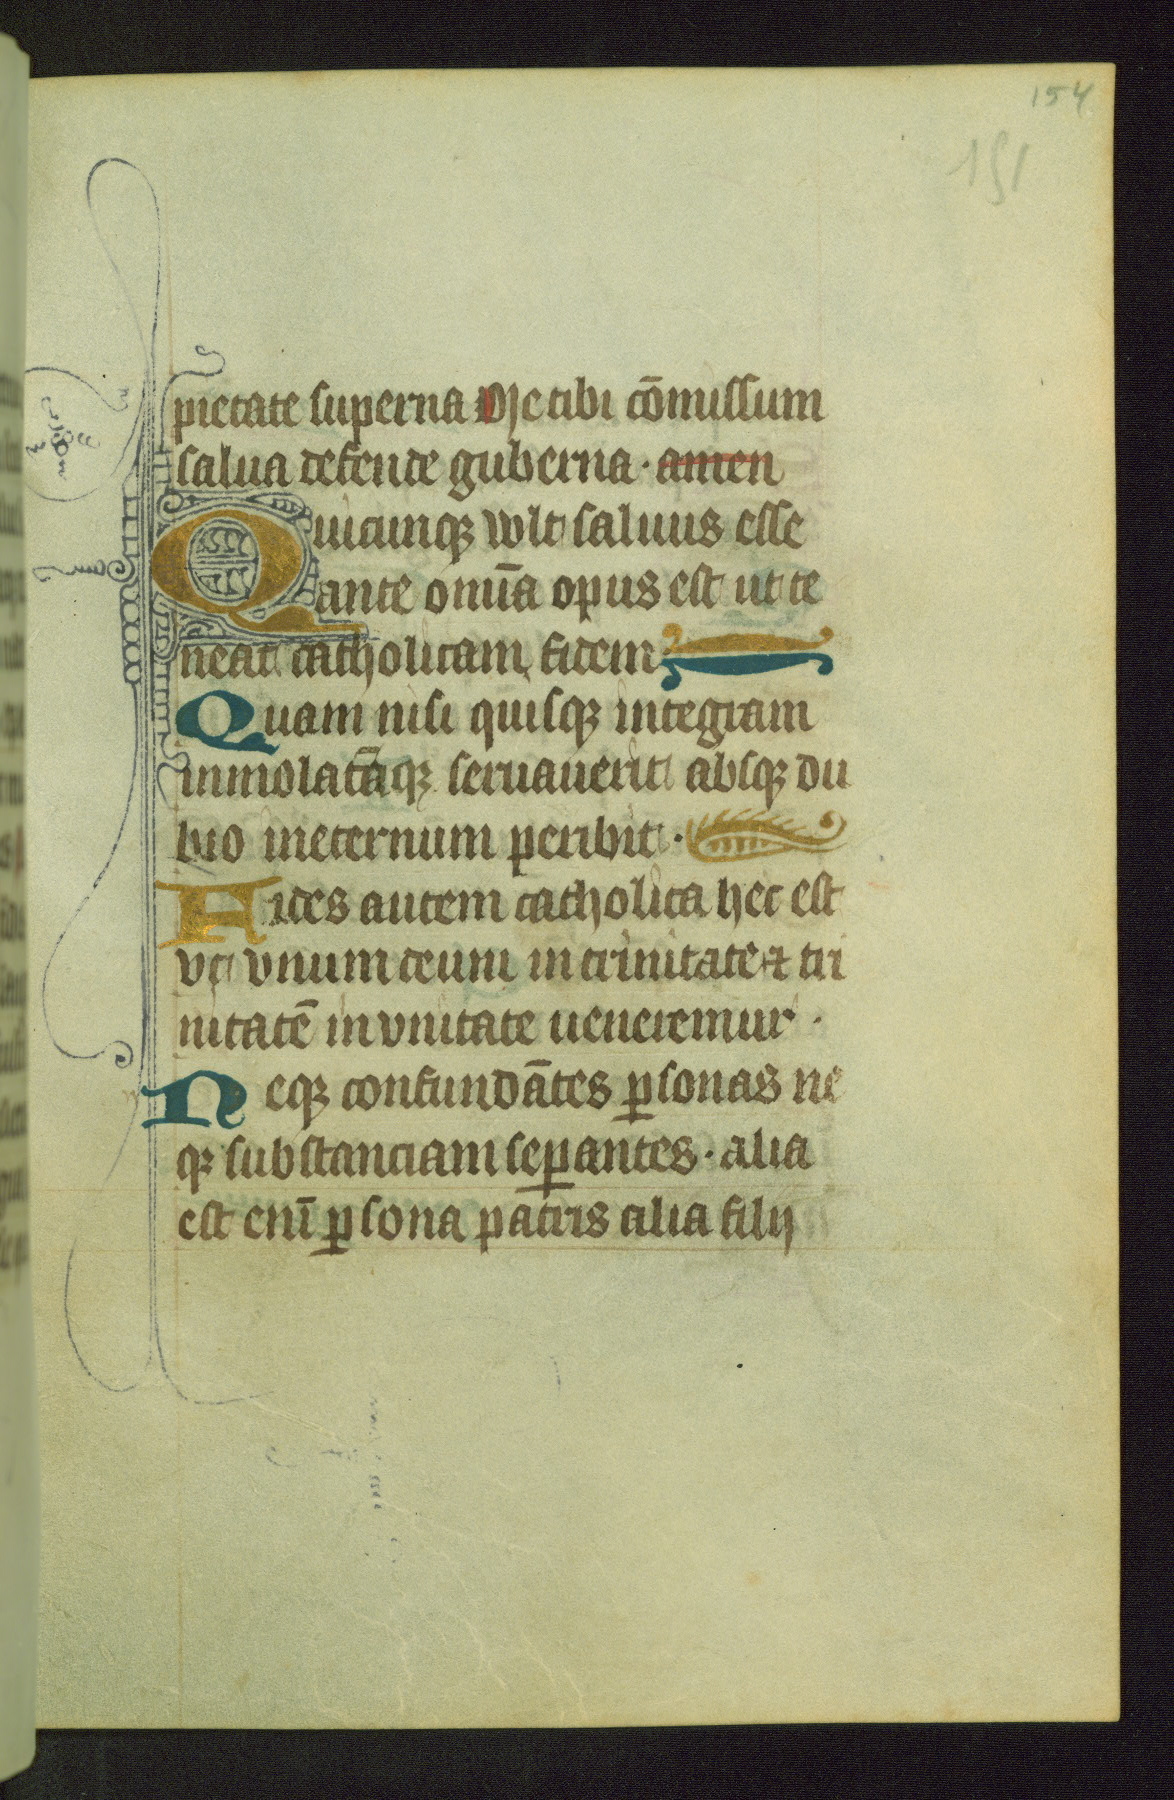 154
151
pietate superna Me tibi cōmissum
salua defende guberna · amen
Quicunqꝫ wlt saluus esse
ante om̄ia opus est ut te
neat catholicam fidem
Quam nisi quisqꝫ integram
inmolatāqꝫ seruauerit absqꝫ du
bio ineternum peribit ·
Fides autem catholica hec est
vt vnum deum in trinitate et tri
nitatē in vnitate ueneremur ·
Neqꝫ confundātes ꝑsonas ne
qꝫ substanciam seꝑantes · alia
est enī ꝑsona patris alia filij